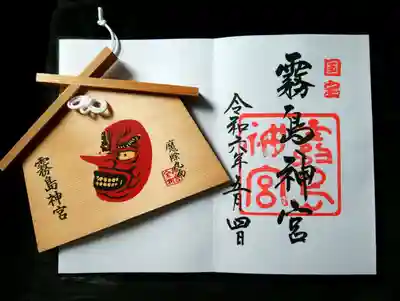 国宝
霧島神宮
霧島神宮
令和六年五月四日
霧島神宮
魔除九面